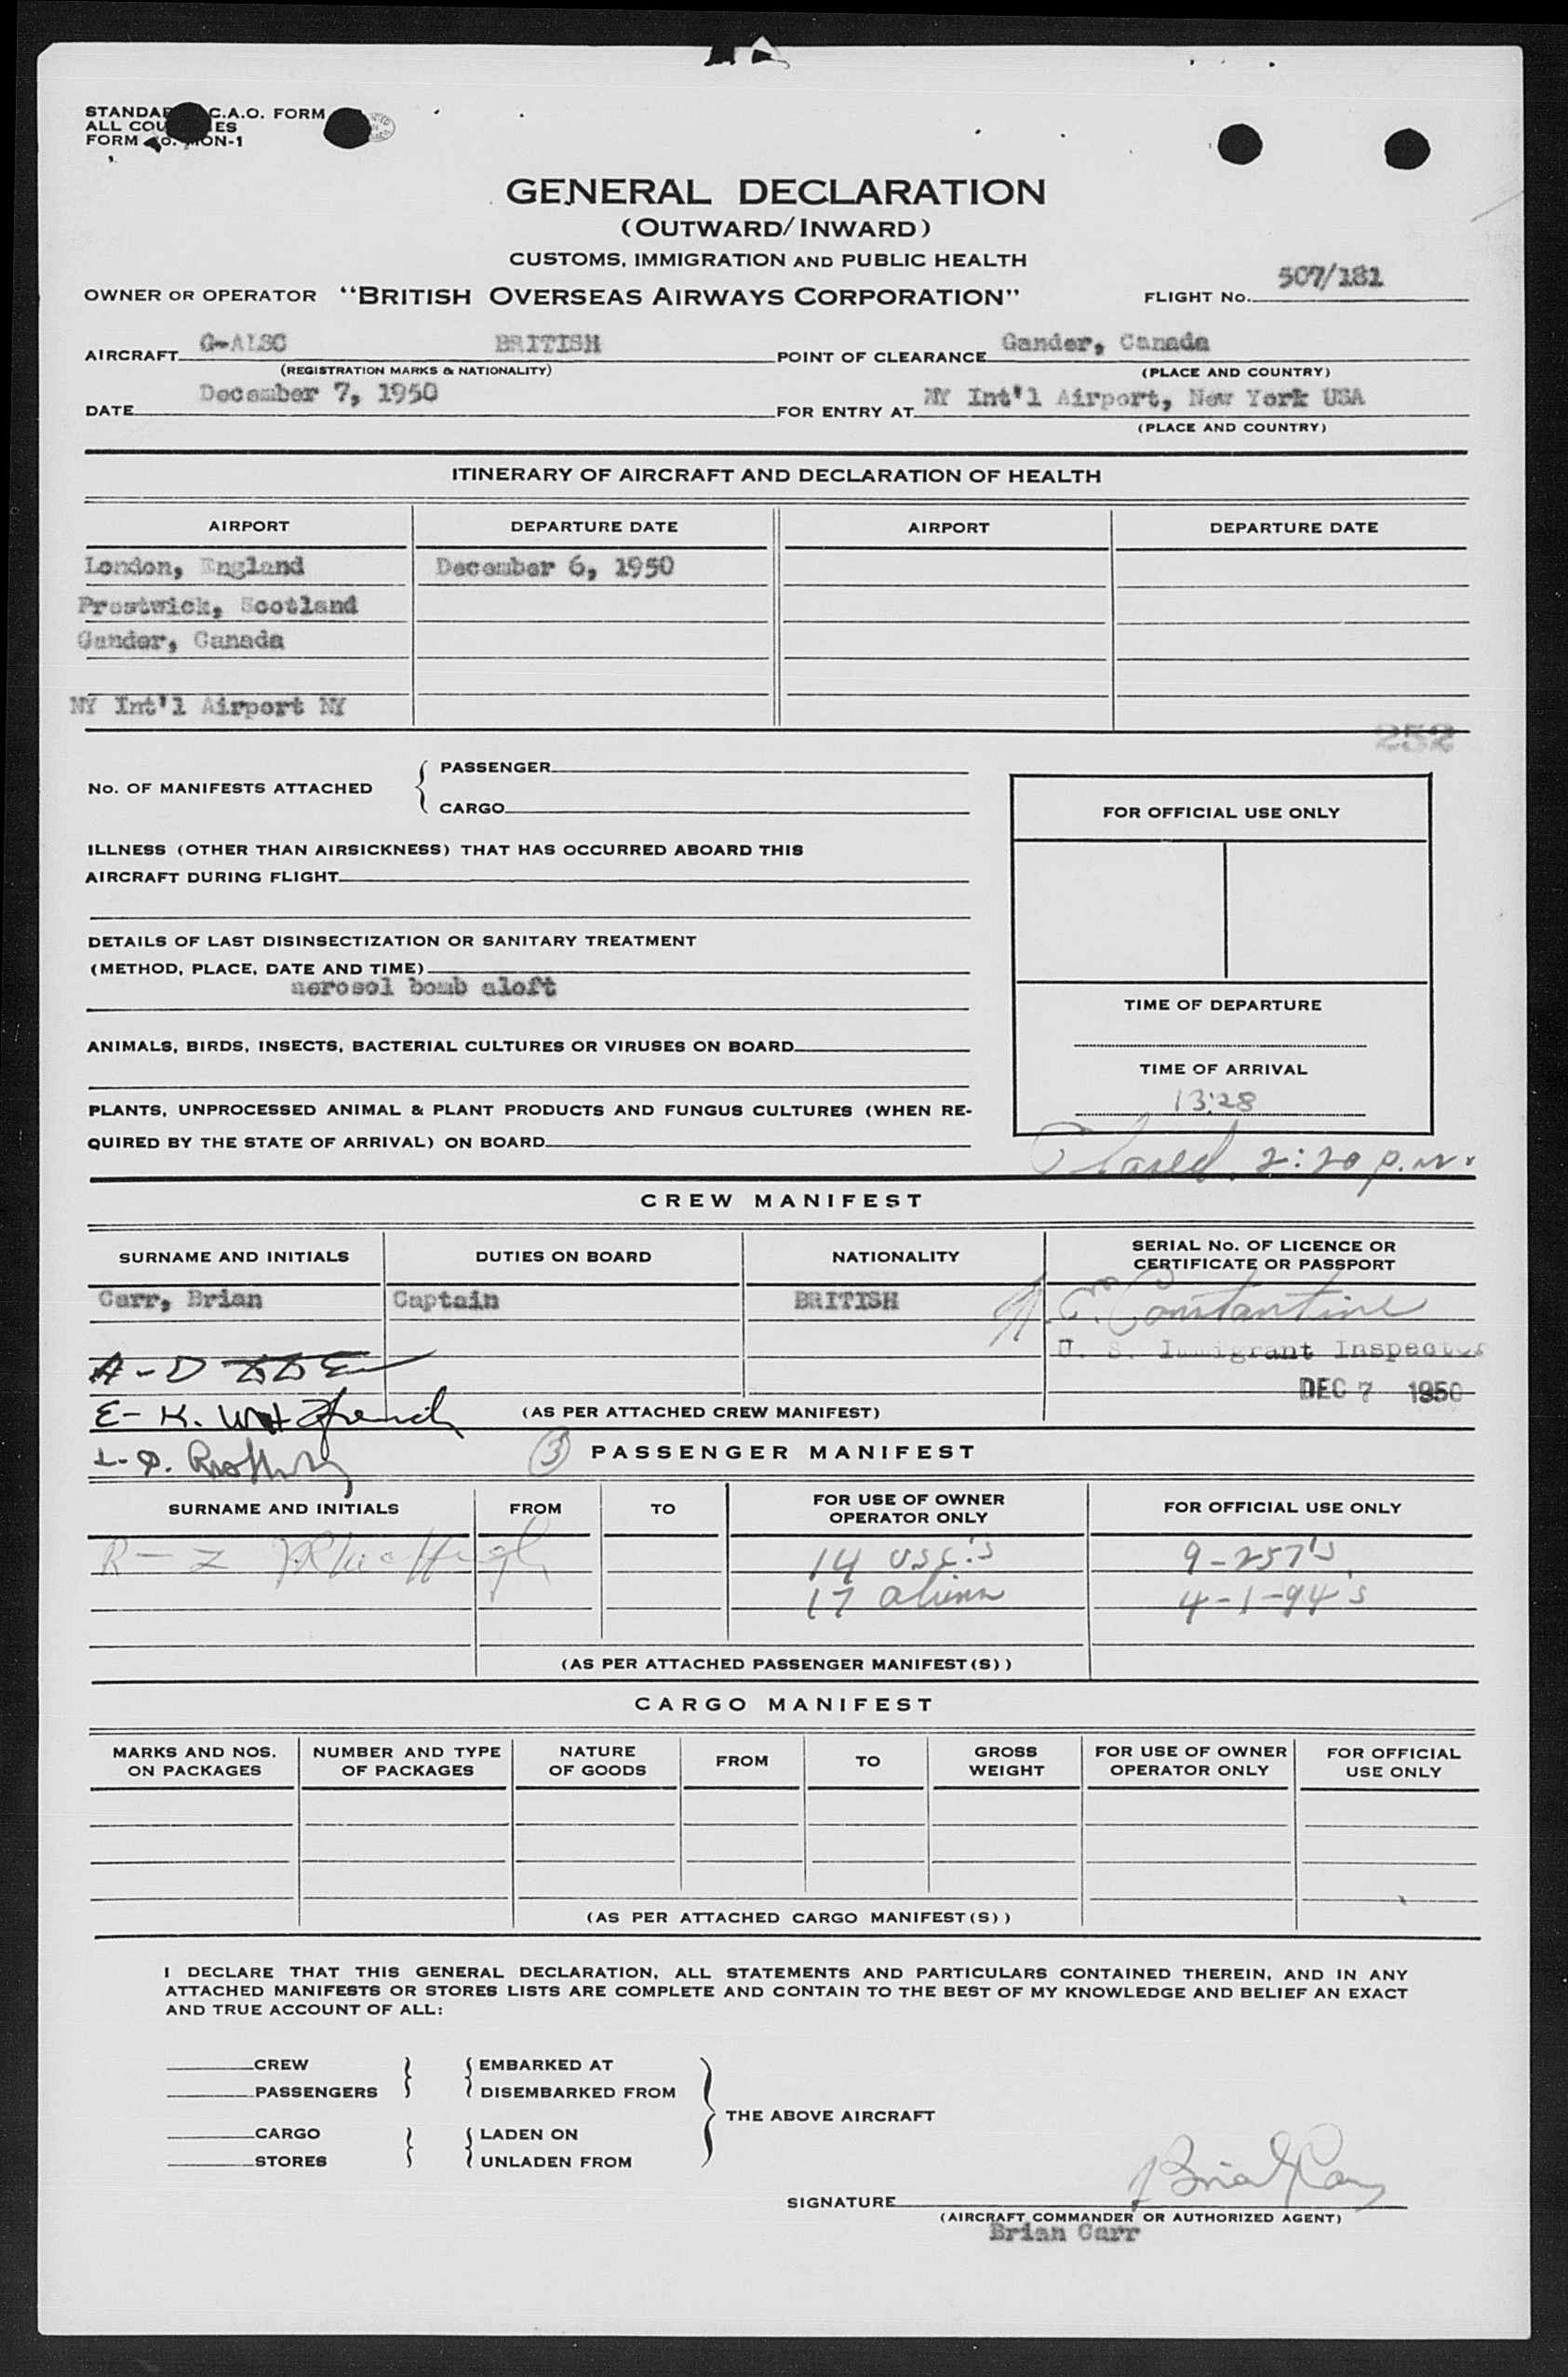 STANDA C.A.O. FORM
ALL COU ES
FORM O. ON-1
GENERAL DECLARATION
(OUTWARD/INWARD)
CUSTOMS, IMMIGRATION AND PUBLIC HEALTH
OWNER OR OPERATOR "BRITISH OVERSEAS AIRWAYS CORPORATION" FLIGHT No. 507/181
AIRCRAFT G-ALSC BRITISH POINT OF CLEARANCE Gander, Canada
(REGISTRATION MARKS & NATIONALITY) (PLACE AND COUNTRY)
DATE December 7, 1950 FOR ENTRY AT NY Int'l Airport, New York USA
(PLACE AND COUNTRY)
ITINERARY OF AIRCRAFT AND DECLARATION OF HEALTH
AIRPORT DEPARTURE DATE AIRPORT DEPARTURE DATE
London, England December 6, 1950
Prestwick, Scotland
Gander, Canada
NY Int'l Airport NY
252
No. OF MANIFESTS ATTACHED { PASSENGER
CARGO
FOR OFFICIAL USE ONLY
ILLNESS (OTHER THAN AIRSICKNESS) THAT HAS OCCURRED ABOARD THIS
AIRCRAFT DURING FLIGHT
DETAILS OF LAST DISINSECTIZATION OR SANITARY TREATMENT
(METHOD, PLACE, DATE AND TIME)
aerosol bomb aloft
TIME OF DEPARTURE
ANIMALS, BIRDS, INSECTS, BACTERIAL CULTURES OR VIRUSES ON BOARD
TIME OF ARRIVAL
13:28
PLANTS, UNPROCESSED ANIMAL & PLANT PRODUCTS AND FUNGUS CULTURES (WHEN RE-
QUIRED BY THE STATE OF ARRIVAL) ON BOARD
2:20 p.m.
CREW MANIFEST
SURNAME AND INITIALS DUTIES ON BOARD NATIONALITY SERIAL No. OF LICENCE OR
CERTIFICATE OR PASSPORT
Carr, Brian Captain BRITISH
Constantine
U. S. Immigrant Inspector
A-D
DEC 7 1950
E-K.
(AS PER ATTACHED CREW MANIFEST)
(3) PASSENGER MANIFEST
SURNAME AND INITIALS FROM TO FOR USE OF OWNER
OPERATOR ONLY FOR OFFICIAL USE ONLY
R-Z 14 USC's 9-257's
17 aliens 4-1-94's
(AS PER ATTACHED PASSENGER MANIFEST(S))
CARGO MANIFEST
MARKS AND NOS.
ON PACKAGES NUMBER AND TYPE
OF PACKAGES NATURE
OF GOODS FROM TO GROSS
WEIGHT FOR USE OF OWNER
OPERATOR ONLY FOR OFFICIAL
USE ONLY
(AS PER ATTACHED CARGO MANIFEST(S))
I DECLARE THAT THIS GENERAL DECLARATION, ALL STATEMENTS AND PARTICULARS CONTAINED THEREIN, AND IN ANY
ATTACHED MANIFESTS OR STORES LISTS ARE COMPLETE AND CONTAIN TO THE BEST OF MY KNOWLEDGE AND BELIEF AN EXACT
AND TRUE ACCOUNT OF ALL:
CREW EMBARKED AT
PASSENGERS DISEMBARKED FROM
THE ABOVE AIRCRAFT
CARGO LADEN ON
STORES UNLADEN FROM
SIGNATURE Brian Carr
(AIRCRAFT COMMANDER OR AUTHORIZED AGENT)
Brian Carr